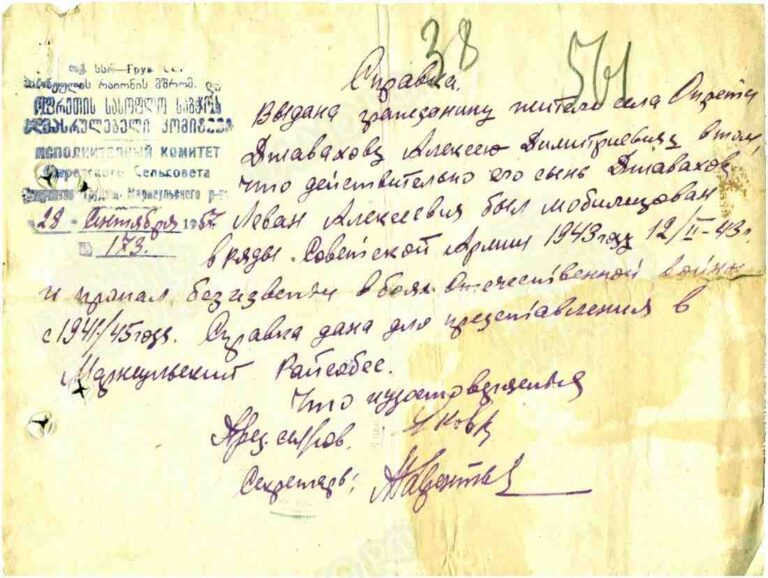 38 561
სსრ — Груз. ССР
რაიონის მშრომ. დეპ
ოფრეთის სასოფლო საბჭოს
აღმასრულებელი კომიტეტი
ИСПОЛНИТЕЛЬНЫЙ КОМИТЕТ
Опретского Сельсовета
Марнеульского р-на
28 - Сентября 1957
№ 173.
Справка.
Выдана гражданину жителю села Опрети
Джавахову Алексею Димитриевичу в том,
что действительно его сынь Джавахов
Леван Алексеевич был мобилизован
в ряды Советской Армии 1943 году 12/II-43 г.
и пропал без извести в боях Отечественной войны
с 1941/45 года. Справка дана для представления в
Марнеульский Райсобес.
Что и удостоверяется
Секретарь: